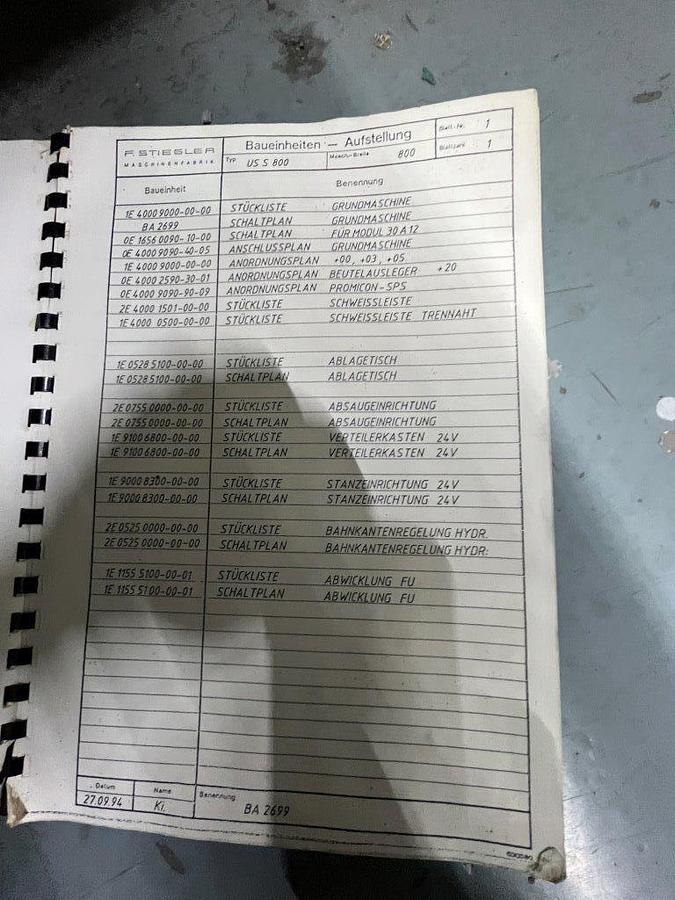 F. STIEGLER
MASCHINENFABRIK
Baueinheiten - Aufstellung
Blatt-Nr. 1
Typ US S 800
Masch.-Breite 800
Blattzahl 1
Baueinheit Benennung
1E 4000 9000-00-00 STÜCKLISTE GRUNDMASCHINE
BA 2699 SCHALTPLAN GRUNDMASCHINE
0E 1656 0090-10-00 SCHALTPLAN FÜR MODUL 30 A 12
0E 4000 9090-40-05 ANSCHLUSSPLAN GRUNDMASCHINE
1E 4000 9000-00-00 ANORDNUNGSPLAN +00, +03, +05
0E 4000 2590-30-01 ANORDNUNGSPLAN BEUTELAUSLEGER +20
0E 4000 9090-90-09 ANORDNUNGSPLAN PROMICON-SPS
2E 4000 1501-00-00 STÜCKLISTE SCHWEISSLEISTE
1E 4000 0500-00-00 STÜCKLISTE SCHWEISSLEISTE TRENNAHT
1E 0528 5100-00-00 STÜCKLISTE ABLAGETISCH
1E 0528 5100-00-00 SCHALTPLAN ABLAGETISCH
2E 0755 0000-00-00 STÜCKLISTE ABSAUGEINRICHTUNG
2E 0755 0000-00-00 SCHALTPLAN ABSAUGEINRICHTUNG
1E 9100 6800-00-00 STÜCKLISTE VERTEILERKASTEN 24V
1E 9100 6800-00-00 SCHALTPLAN VERTEILERKASTEN 24V
1E 9000 8300-00-00 STÜCKLISTE STANZEINRICHTUNG 24V
1E 9000 8300-00-00 SCHALTPLAN STANZEINRICHTUNG 24V
2E 0525 0000-00-00 STÜCKLISTE BAHNKANTENREGELUNG HYDR.
2E 0525 0000-00-00 SCHALTPLAN BAHNKANTENREGELUNG HYDR.
1E 1155 5100-00-01 STÜCKLISTE ABWICKLUNG FU
1E 1155 5100-00-01 SCHALTPLAN ABWICKLUNG FU
Datum Name Benennung
27.09.94 Ki. BA 2699